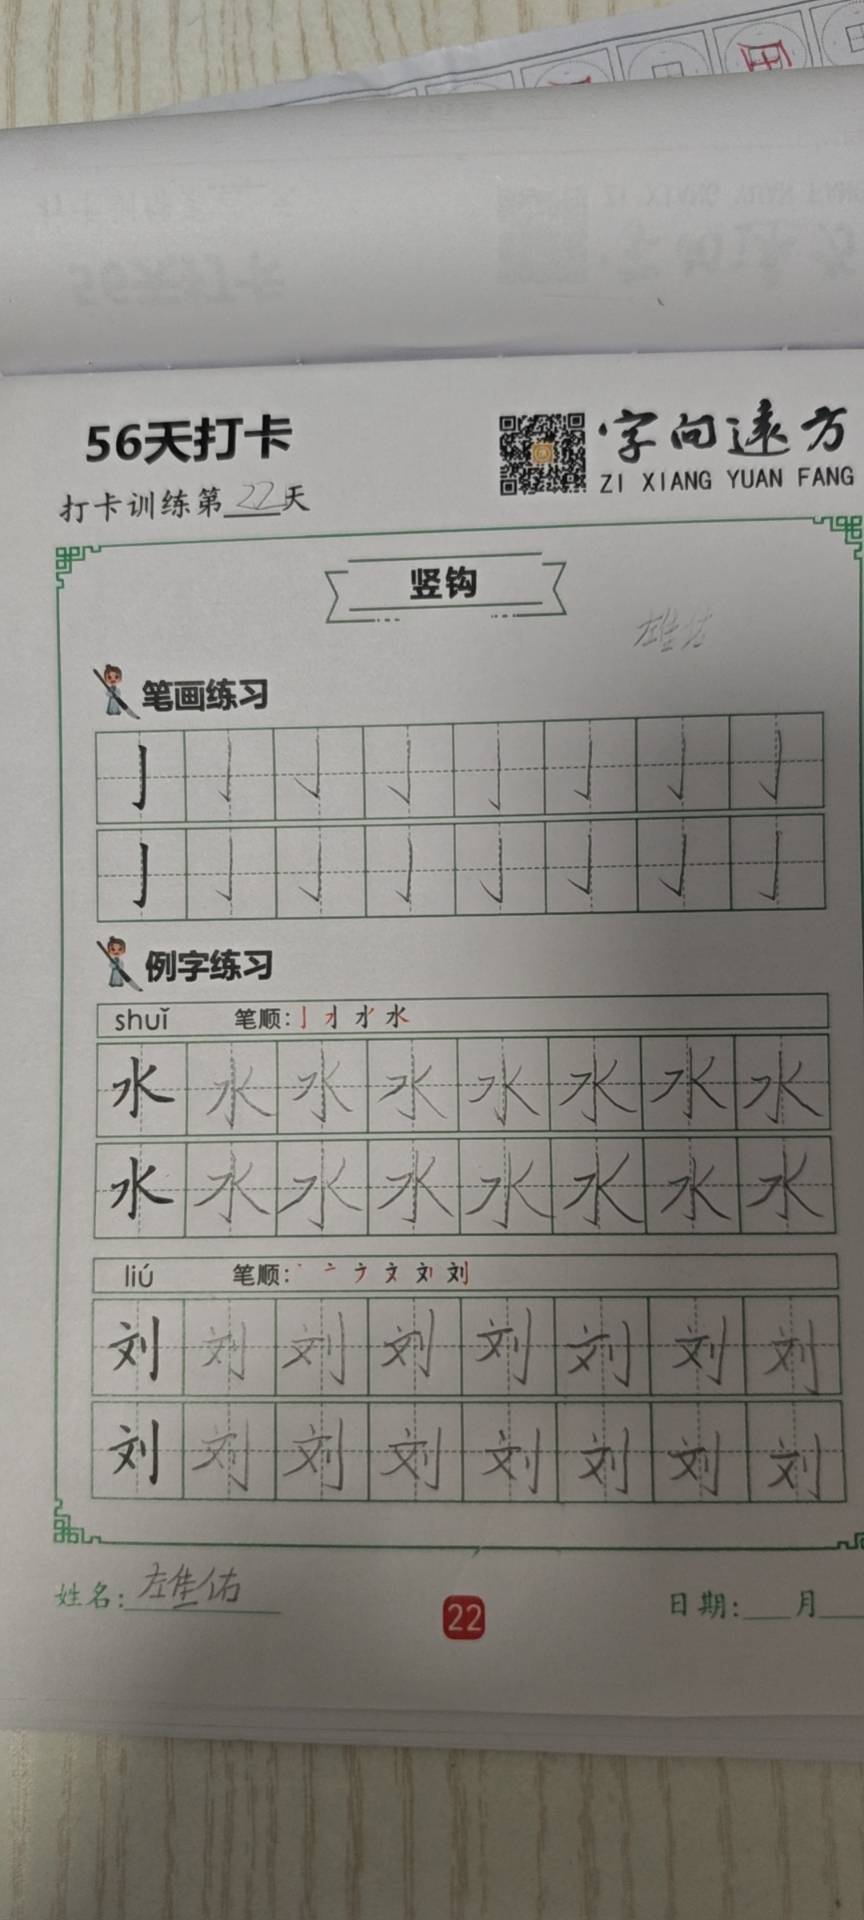 56天打卡
字向远方
ZI XIANG YUAN FANG
打卡训练第22天
竖钩
雄佑
笔画练习
亅 亅 亅 亅 亅 亅 亅 亅
亅 亅 亅 亅 亅 亅 亅 亅
例字练习
shuǐ 笔顺: 水
水 水 水 水 水 水 水 水
水 水 水 水 水 水 水 水
liú 笔顺: 刘
刘 刘 刘 刘 刘 刘 刘 刘
刘 刘 刘 刘 刘 刘 刘 刘
姓名: 雄佑
22
日期: 月